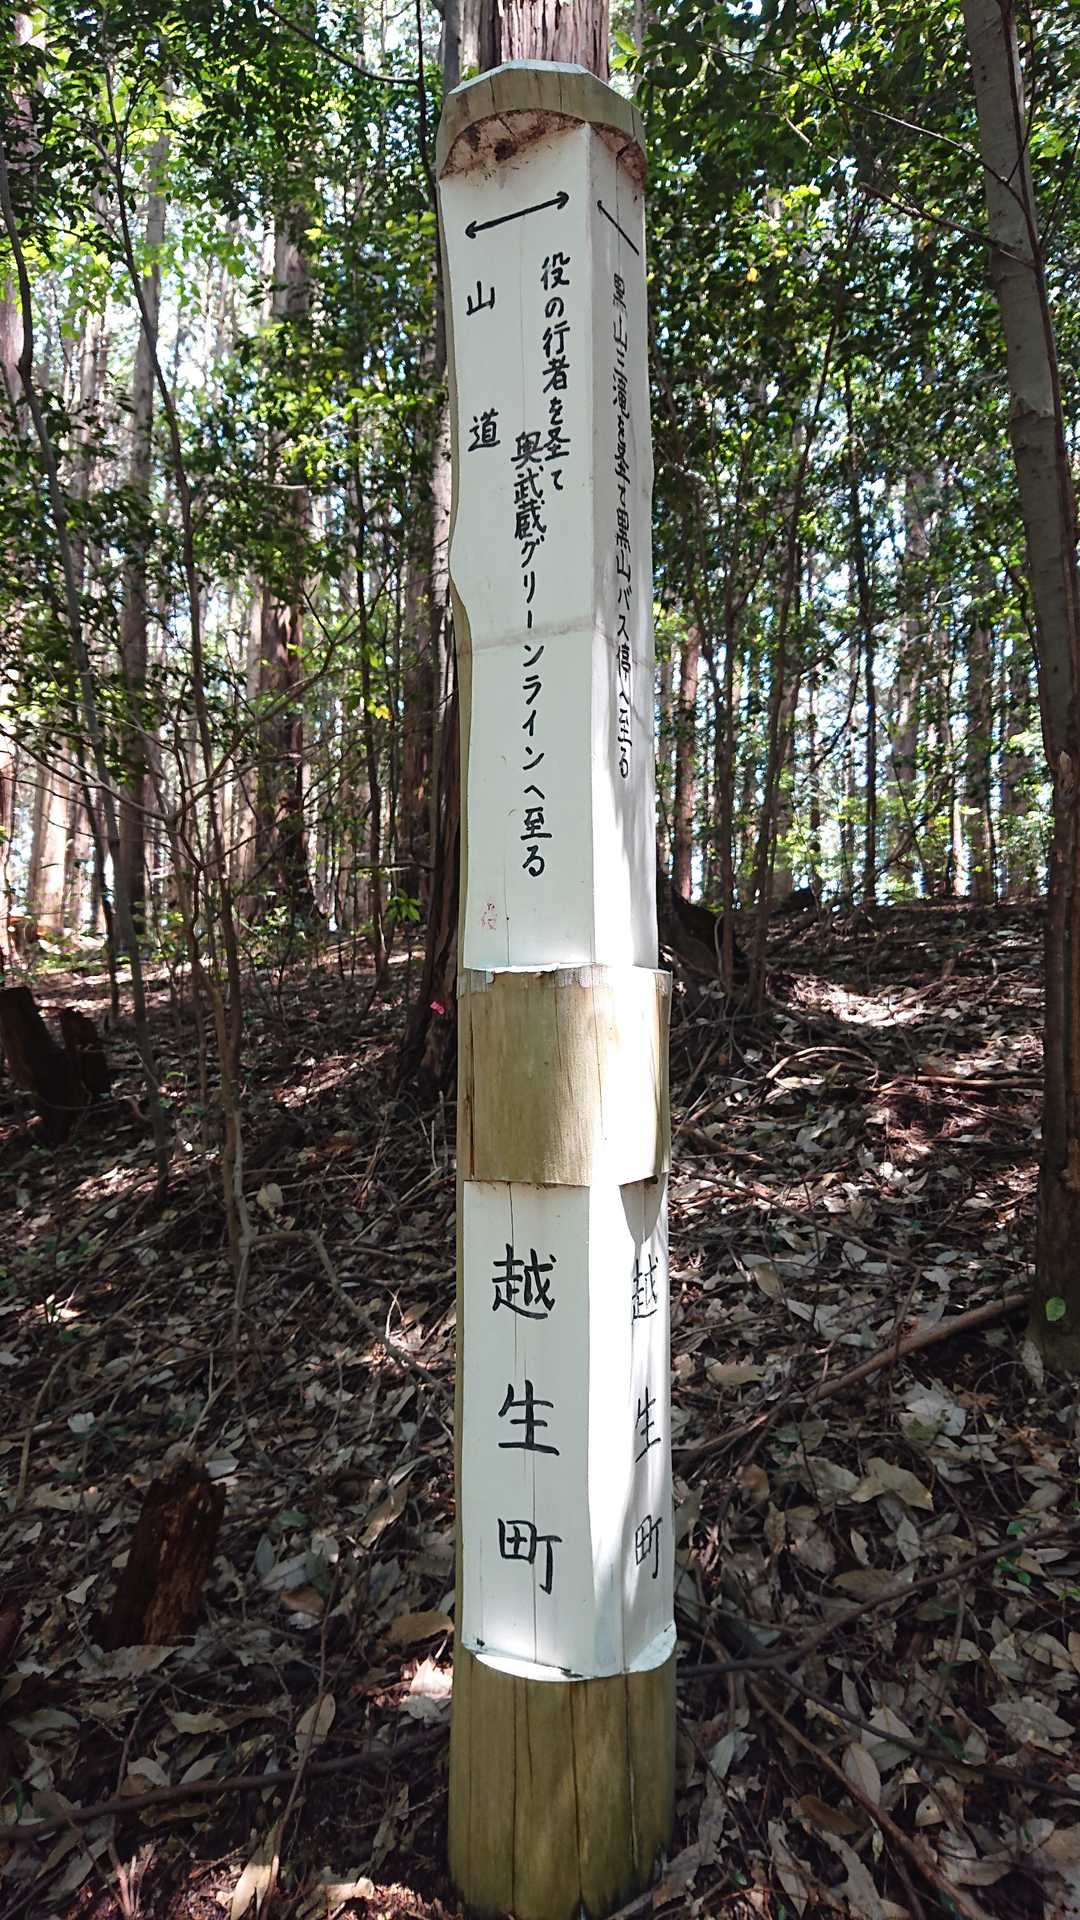 役の行者を圣て
奥武蔵グリーンラインへ至る
山道
越生町
黒山三滝を圣て黒山バス停へ至る
越生町